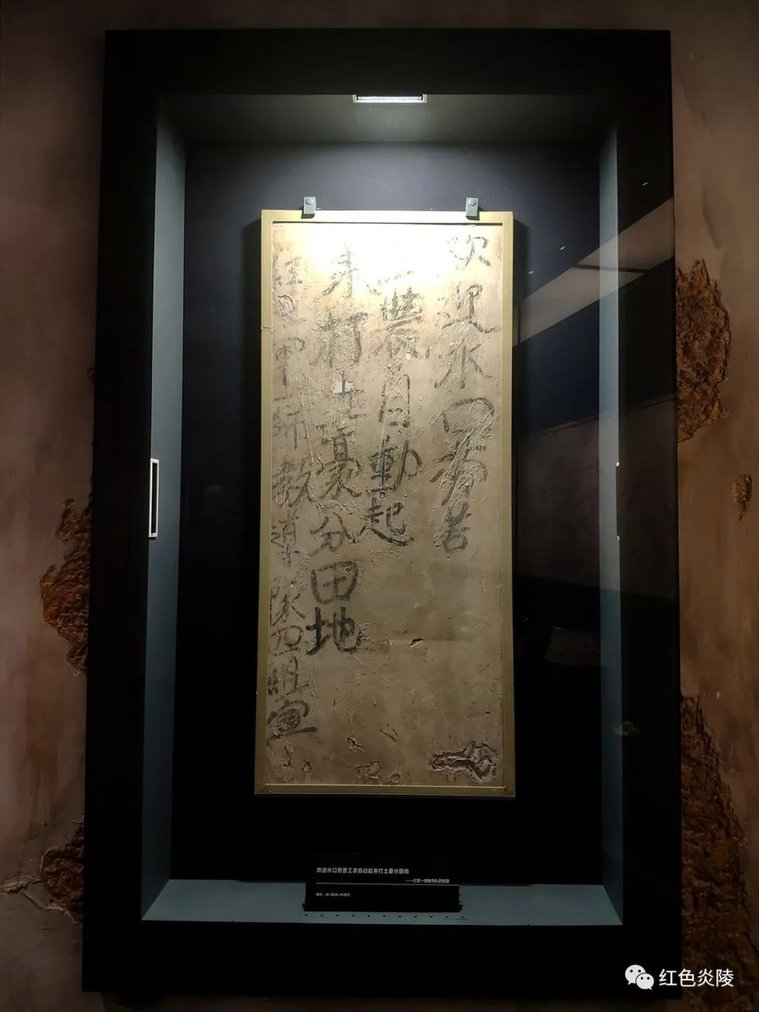 欢迎水口劳苦
工農自動起
来打土豪分田地
教導隊四組宣
欢迎水口劳苦工农自动起来打土豪分田地
红色炎陵